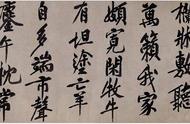 聽
萬籟我家
頗寬閑牧牛
有坦塗亡羊
自多端市聲
鏖午枕常